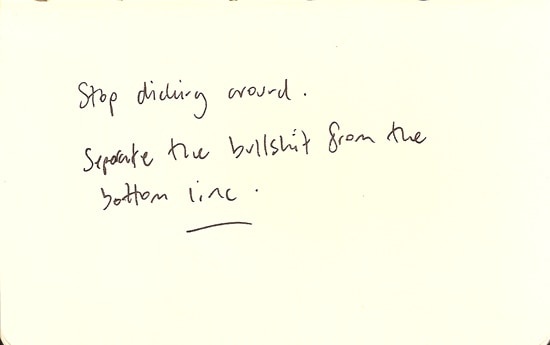 Stop dicking around.
Separate the bullshit from the
bottom line.